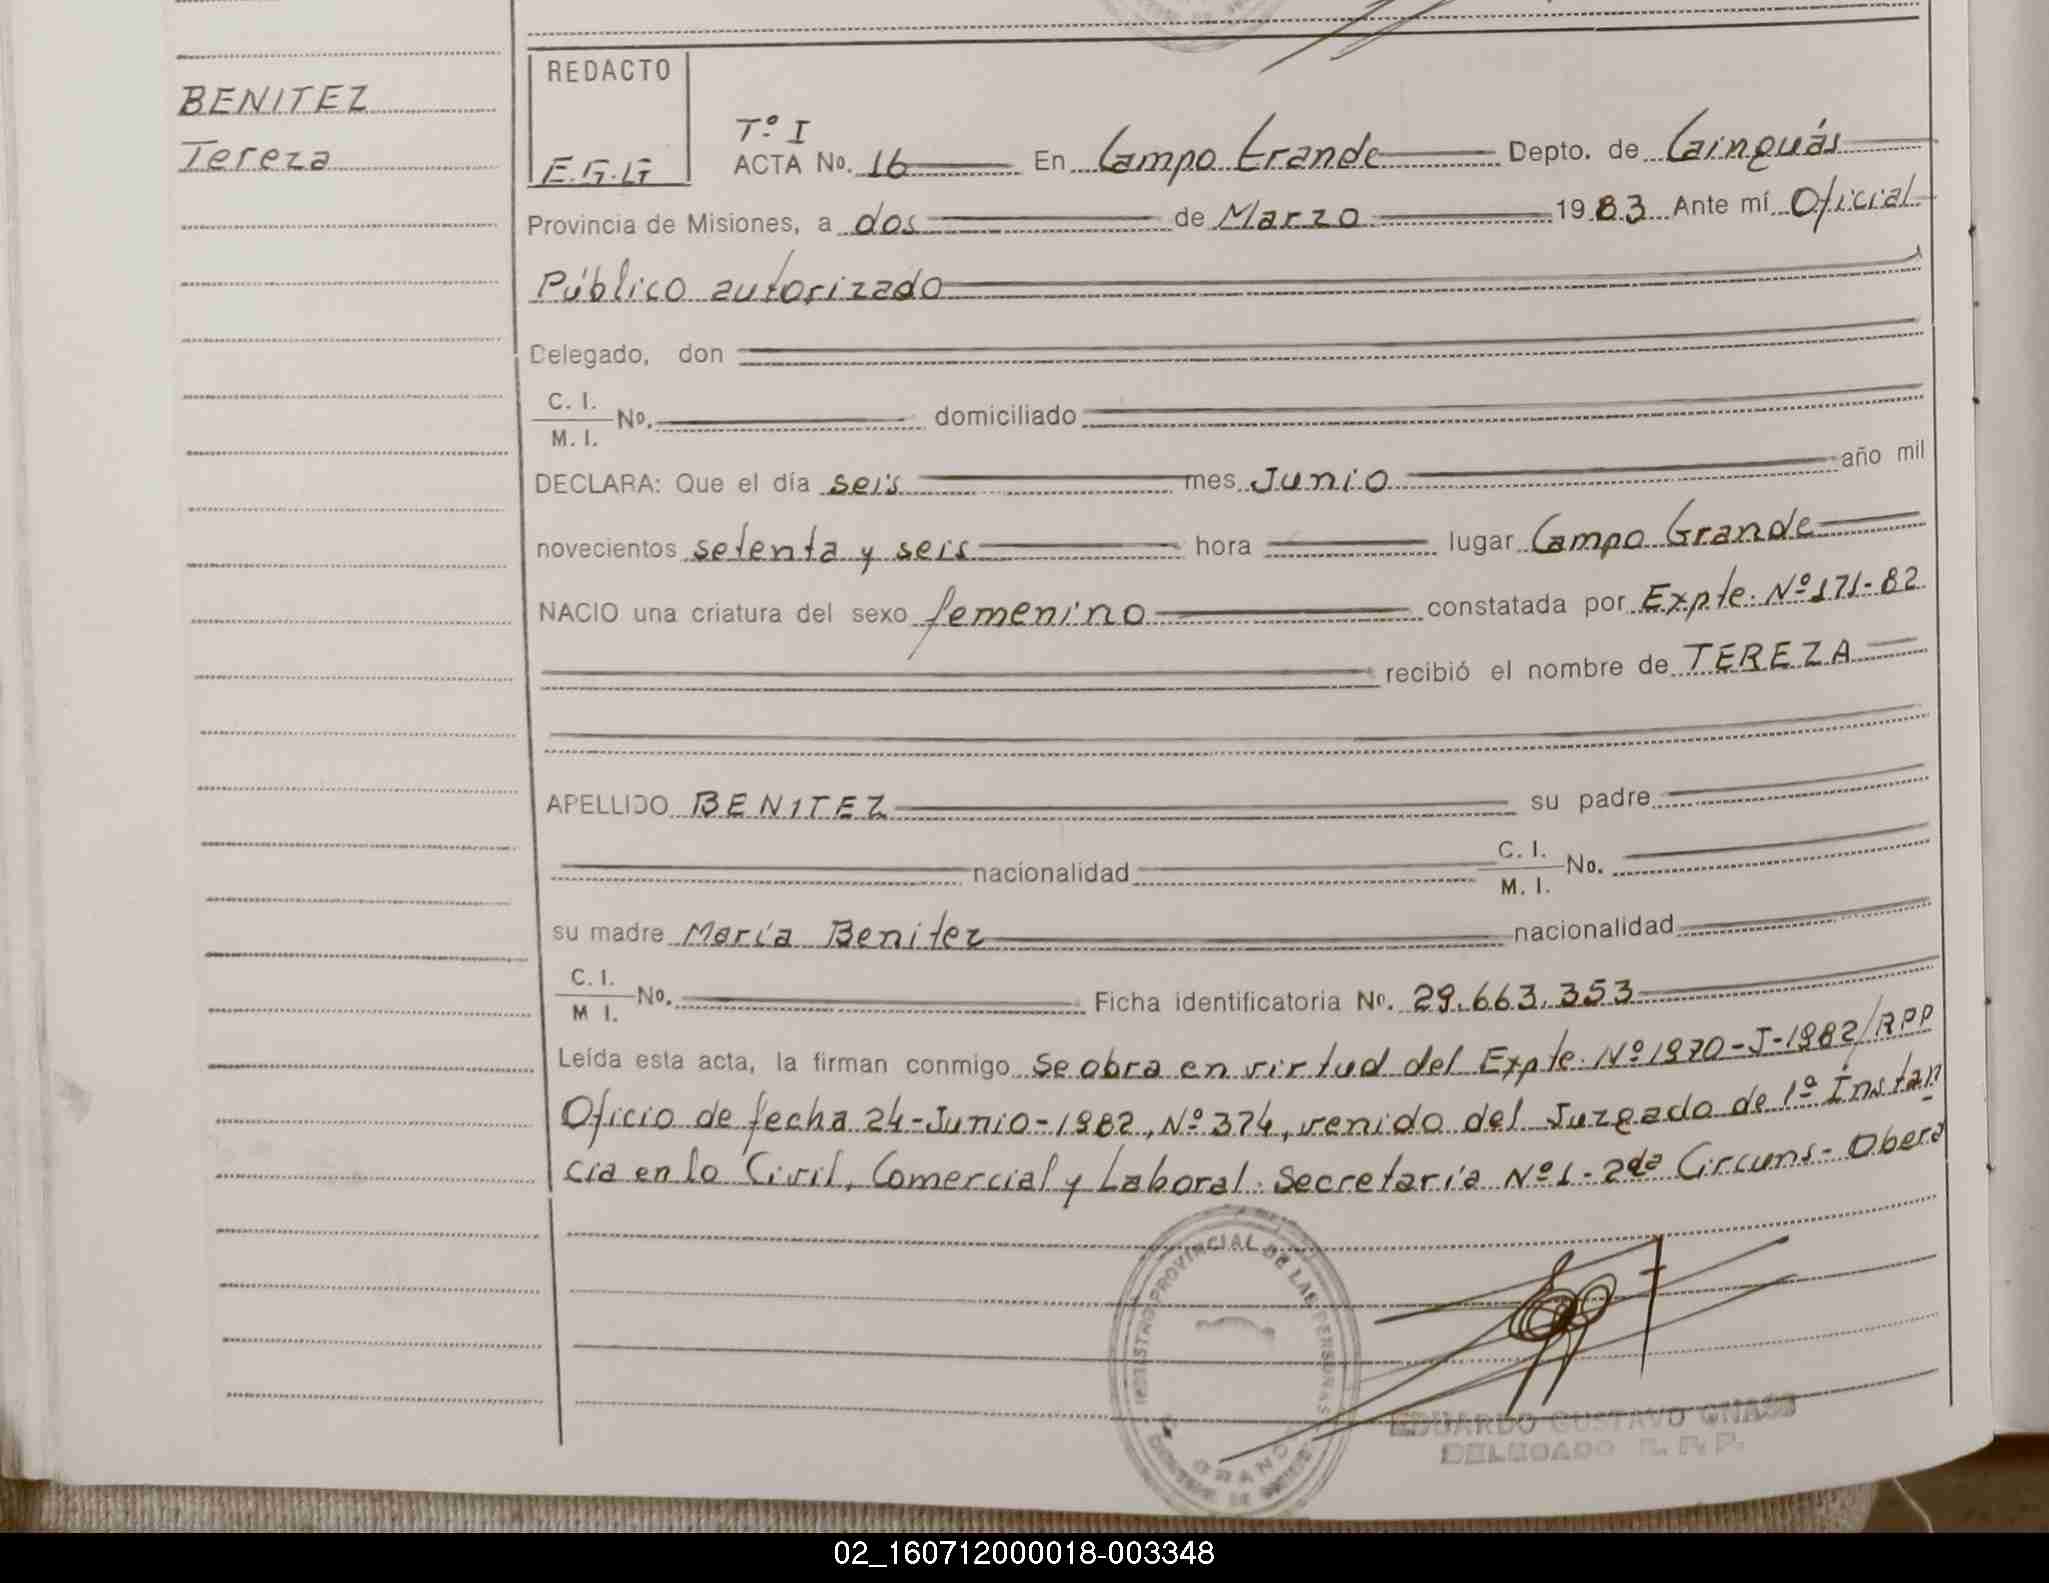 BENITEZ
Tereza
REDACTO
E.G.G
Tº I
ACTA No. 16 En Campo Grande Depto. de Cainguás
Provincia de Misiones, a dos de Marzo 1983 Ante mí Oficial
Público autorizado
Delegado, don
C. I.
M. I. No. domiciliado
DECLARA: Que el día seis mes Junio año mil
novecientos setenta y seis hora lugar Campo Grande
NACIO una criatura del sexo femenino constatada por Expte. Nº 171-82
recibió el nombre de TEREZA
APELLIDO BENITEZ su padre
nacionalidad C. I.
M. I. No.
su madre María Benitez nacionalidad
C. I.
M I. No. Ficha identificatoria No. 29.663.353
Leída esta acta, la firman conmigo Se obra en virtud del Expte. Nº 1970-J-1982/RPP
Oficio de fecha 24-Junio-1982, Nº 374, venido del Juzgado de 1ª Instan
cia en lo Civil, Comercial y Laboral. Secretaría Nº 1-2da Circuns- Oberá
REGISTRO PROVINCIAL DE LAS PERSONAS
GRANDE
EDUARDO GUSTAVO
DELEGADO R. P. P.
02_160712000018-003348